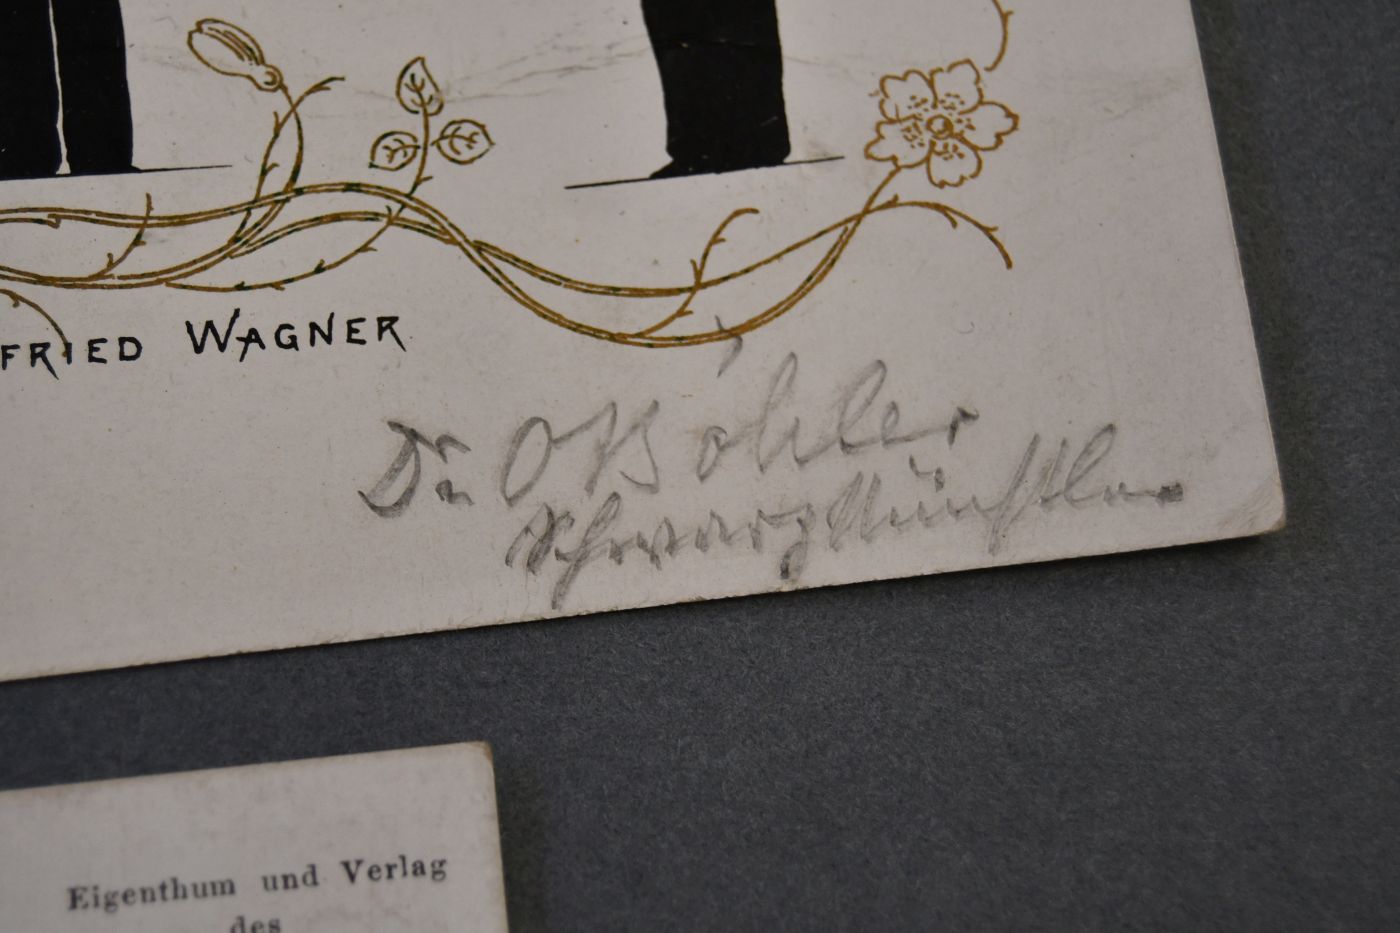 FRIED WAGNER
Dr. O Böhler
Schwarzkünstler
Eigenthum und Verlag
des